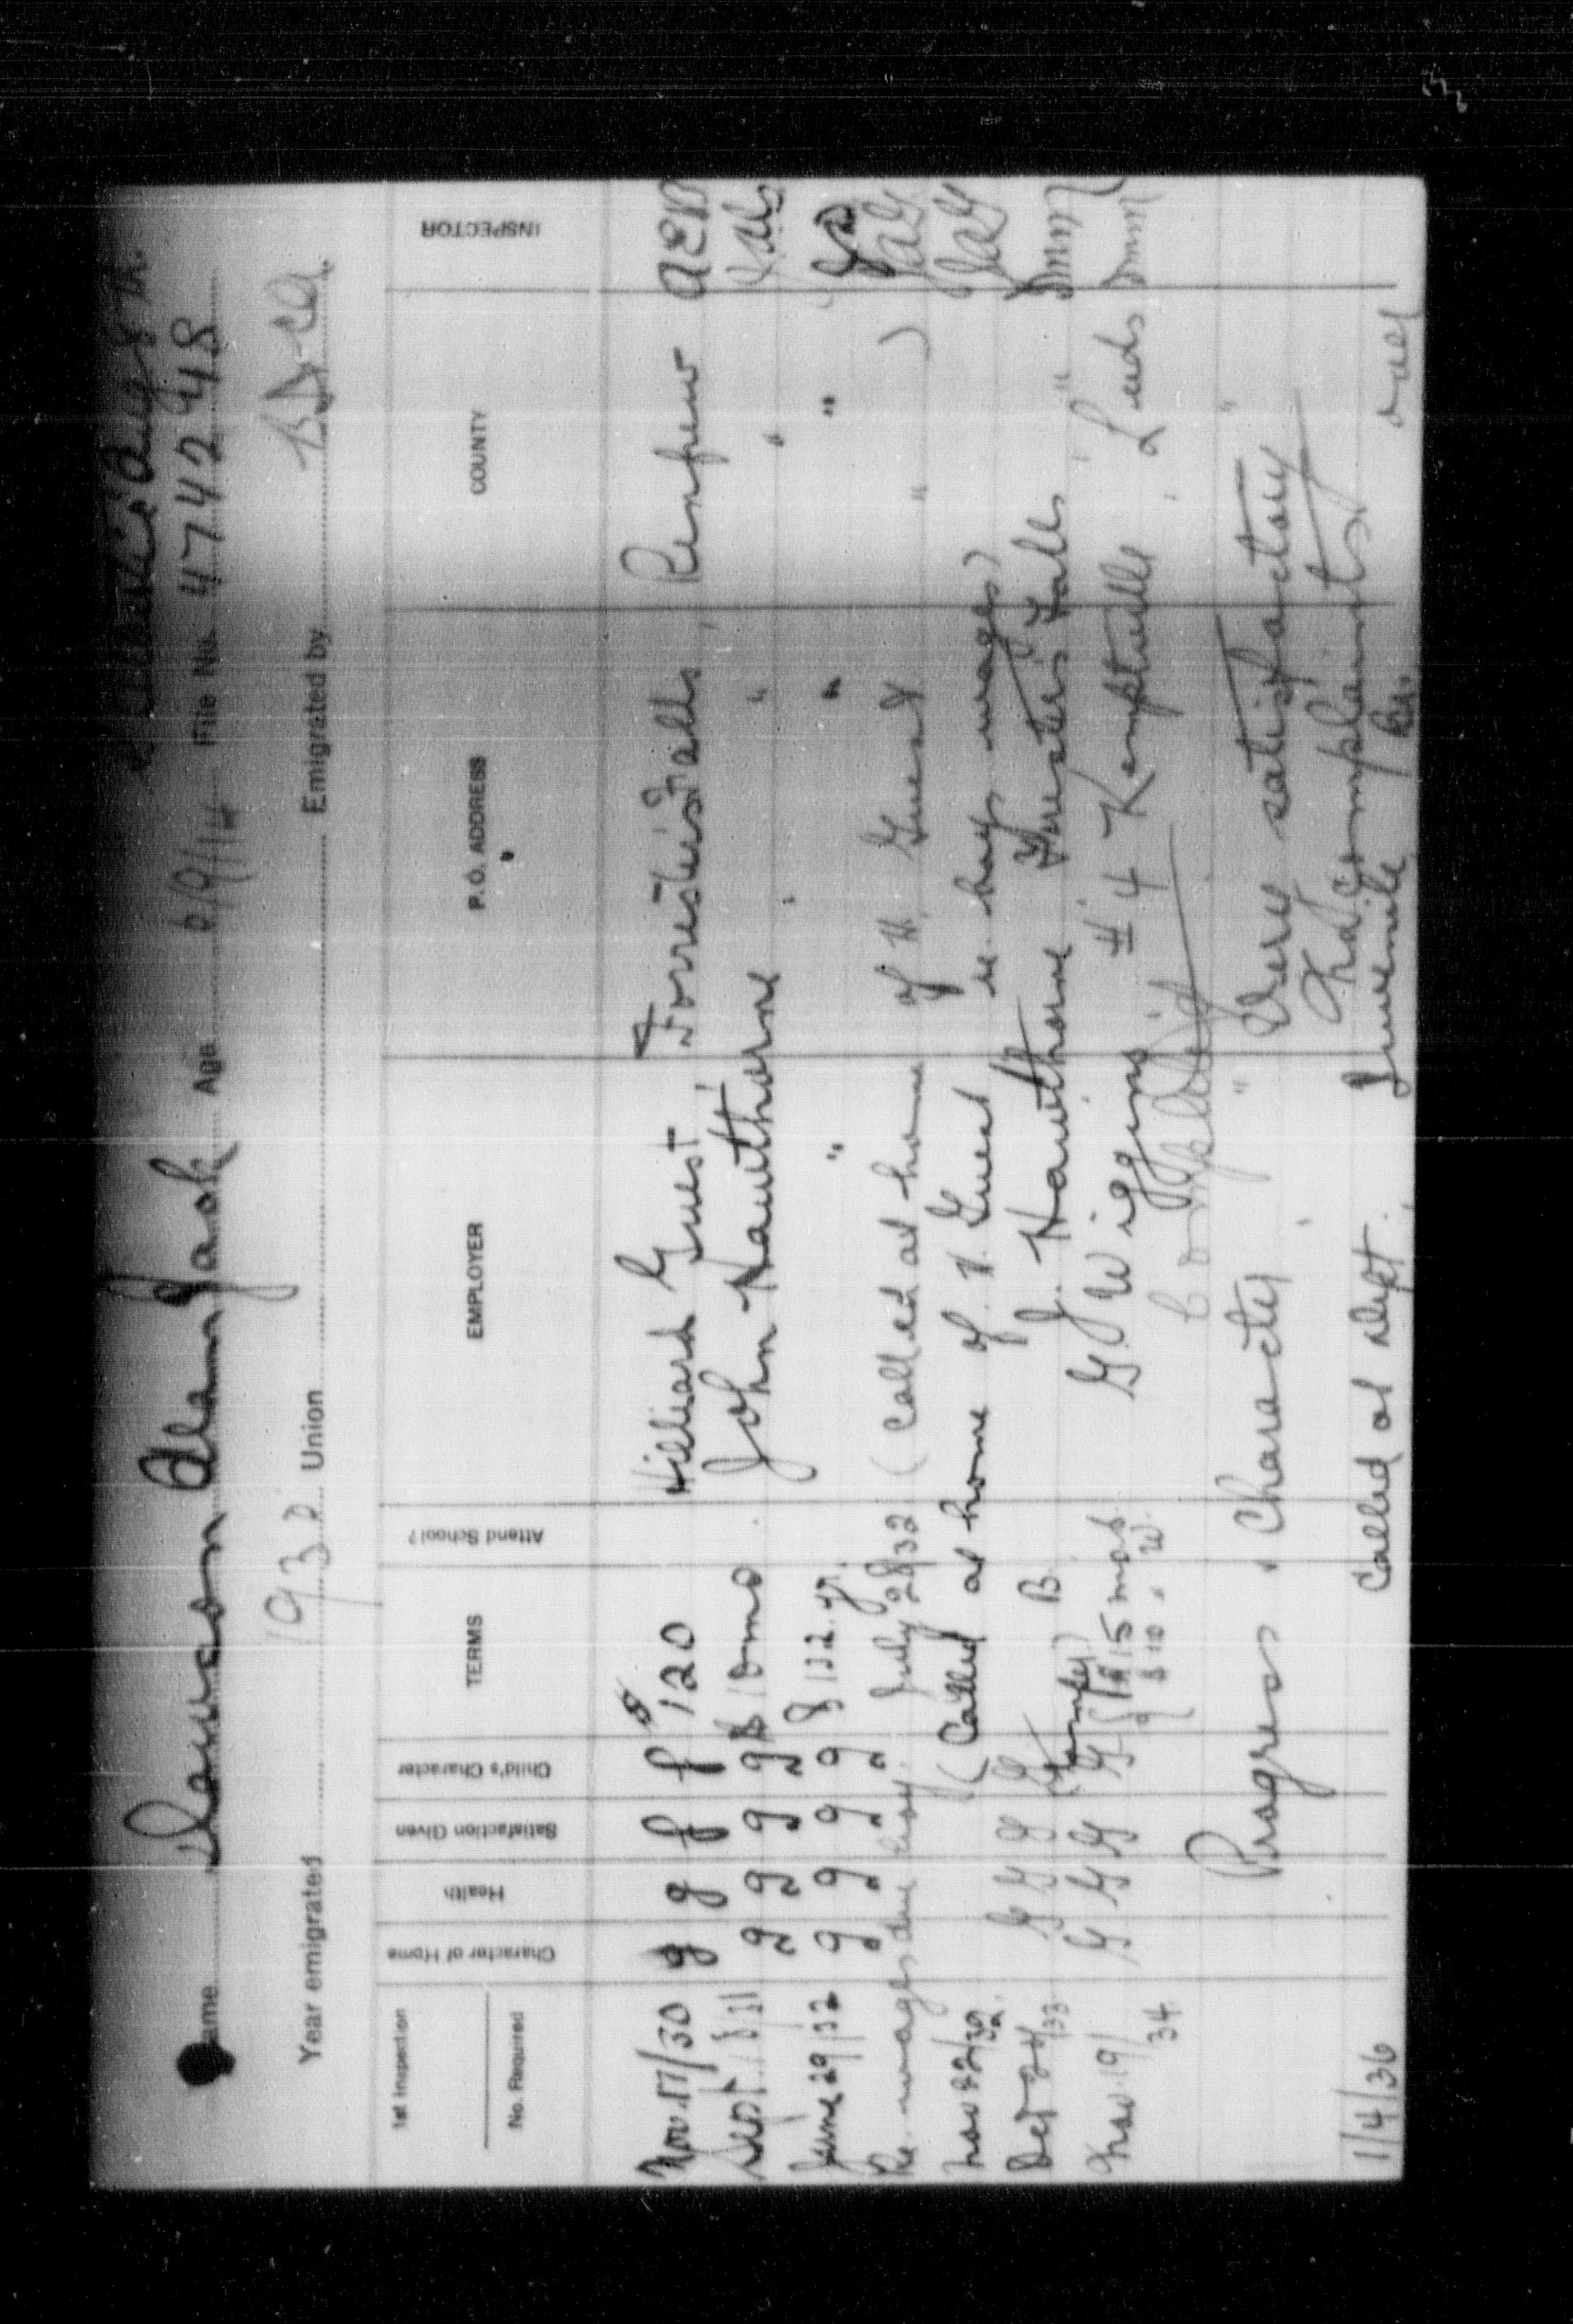 Name Dawson Alan Jack Age 6/9/14 File No. 474248
Year emigrated 1930 Union Emigrated by
1st Inspection
No. Required
Character of Home Health Satisfaction Given Child's Character TERMS Attend School? EMPLOYER P. O. ADDRESS COUNTY INSPECTOR
Nov. 17/30 g g f f $120 Hilliard Guest Forrester's Falls, Renfrew AEB
Sept. 8/31 g g g g $10 mo John Hawthorne " "
June 29/32 g g g g $122 yr. " " "
Re. wages due boy. July 28/32 (Called at home of H. Guest " ) JAG
Nov 22/32 (Called at home of H. Guest re boys wages) JAG
Oct 24/33 G G G G B. J. Hawthorne Forester's Falls " DMM
(Temper)
Nov. 19/34 G G G G $15 mos. G. Wiggins #4 Kemptville, Leeds DMM
$10 " W.
Completed
Progress & Character " Very satisfactory "
No complaints
1/4/36 Called at Dept. Juvenile Re. over